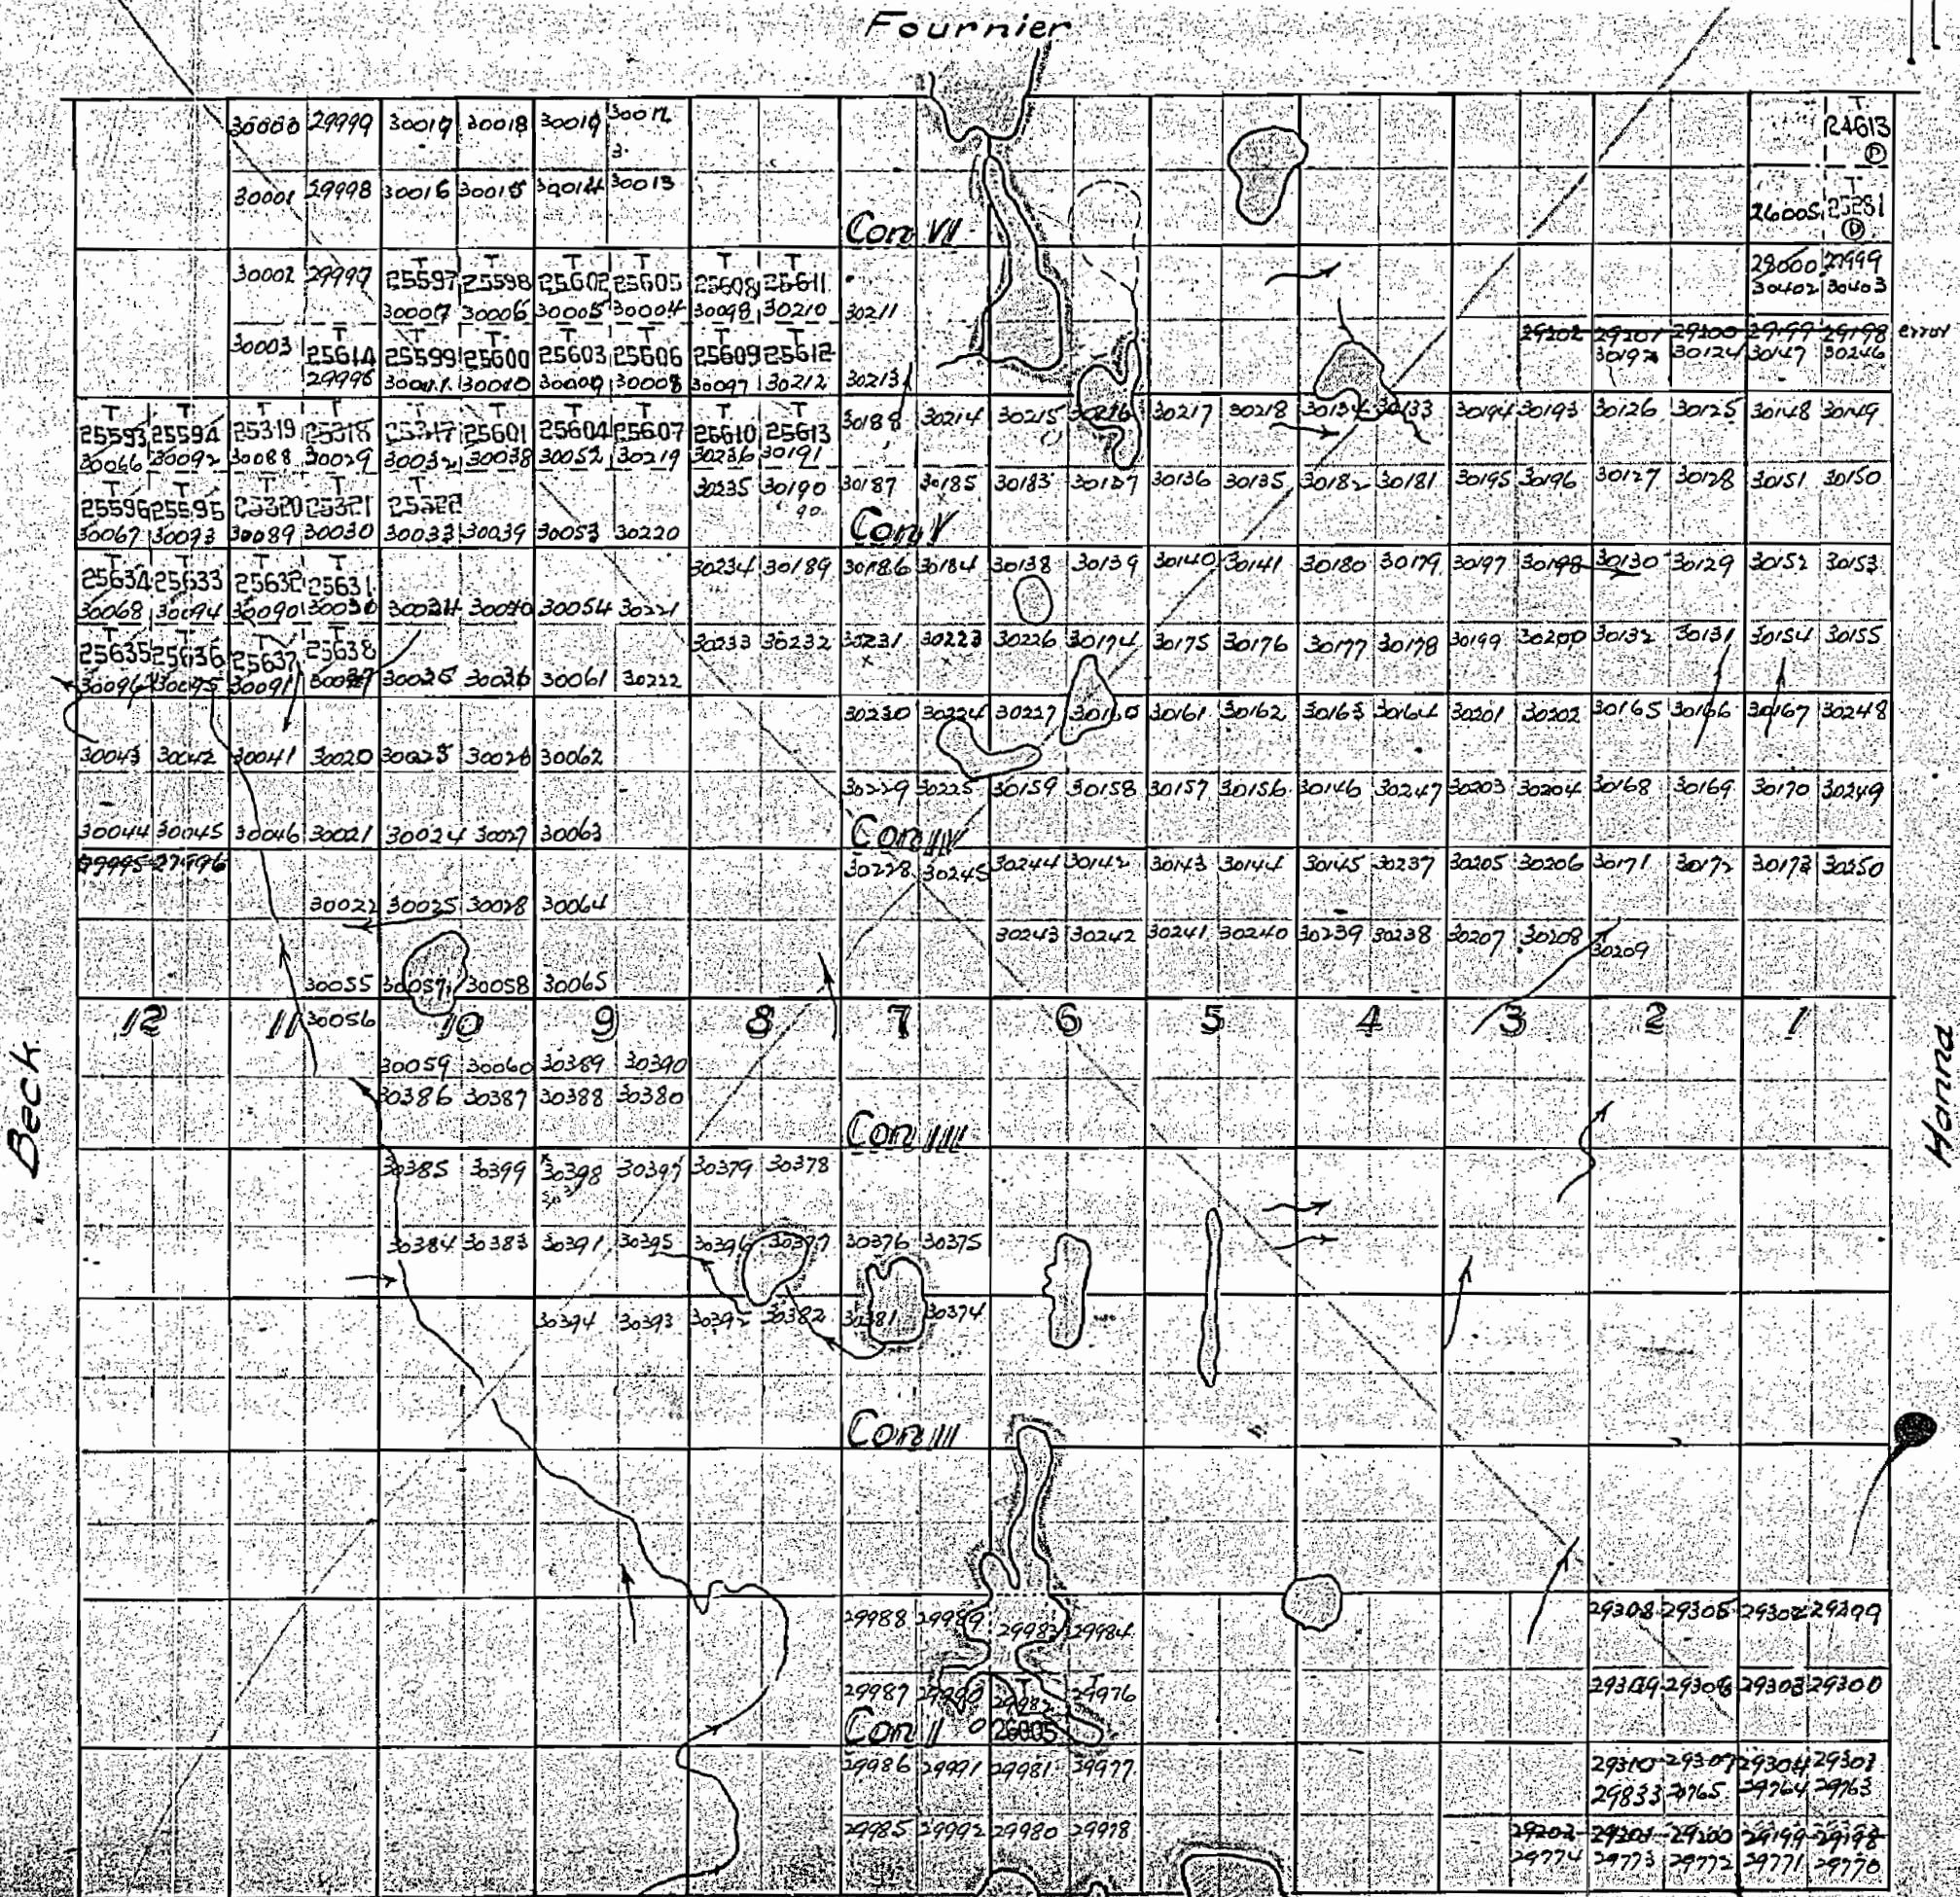 Fournier
30000 29999 30017 30018 30019 30012
T
R24613
P
3
30001 29998 30016 30015 30014 30013
T
26005 25281
P
Con VI
30002 29997
T T T T T T
25597 25598 25602 25605 25608 25611
28000 27999
30007 30006 30005 30004 30098 30210 30211
30402 30403
29202 29201 29200 29199 29198 error
30003
T T T T T T T
25614 25599 25600 25603 25606 25609 25612
30124 30147 30246
29996 30011 30010 30009 30008 30097 30212 30213
T T T T T T T T T T
25593 25594 25319 25318 25317 25601 25604 25607 25610 25613
30188 30214 30215 30216 30217 30218 30134 30133 30194 30193 30126 30125 30148 30149
30066 30092 30088 30029 30032 30038 30052 30219 30236 30191
T T T T T
25596 25595 25320 25321 25322
30235 30190 30187 30185 30183 30137 30136 30135 30182 30181 30195 30196 30127 30128 30151 30150
90
30067 30093 30089 30030 30033 30039 30053 30220
Con V
T T T T
25634 25633 25632 25631
30234 30189 30186 30184 30138 30139 30140 30141 30180 30179 30197 30198 30130 30129 30152 30153
30068 30094 30090 30054 30221
T T T T
25635 25636 25637 25638
30233 30232 30231 30223 30226 30174 30175 30176 30177 30178 30199 30200 30132 30131 30154 30155
30096 30095 30091 30035 30036 30061 30222
30230 30224 30227 30160 30161 30162 30163 30164 30201 30202 30165 30166 30167 30248
30043 30042 30041 30020 30026 30062
30229 30225 30159 30158 30157 30156 30146 30247 30203 30204 30168 30169 30170 30249
30044 30045 30046 30021 30024 30027 30063
Con IV
27995 27996
30228 30245 30244 30142 30143 30144 30145 30237 30205 30206 30171 30172 30173 30250
30022 30025 30028 30064
30243 30242 30241 30240 30239 30238 30207 30208 30209
30055 30057 30058 30065
12 11 30056 10 9 8 7 6 5 4 3 2 1
Beck
Hanna
30059 30060 30389 30390
30386 30387 30388 30380
Con III
30385 30399 30398 30397 30379 30378
30384 30383 30391 30395 30396 30377 30376 30375
30394 30393 30392 30382 30381 30374
Con III
29988 29989 29983 29984
29308 29305 29302 29299
29987 29990 29982 29976
29309 29306 29303 29300
Con II
26005
29986 29991 29981 29977
29310 29307 29304 29301
29833 29765 29764 29763
29985 29992 29980 29978
29202 29201 29200 29199 29198
29774 29773 29772 29771 29770